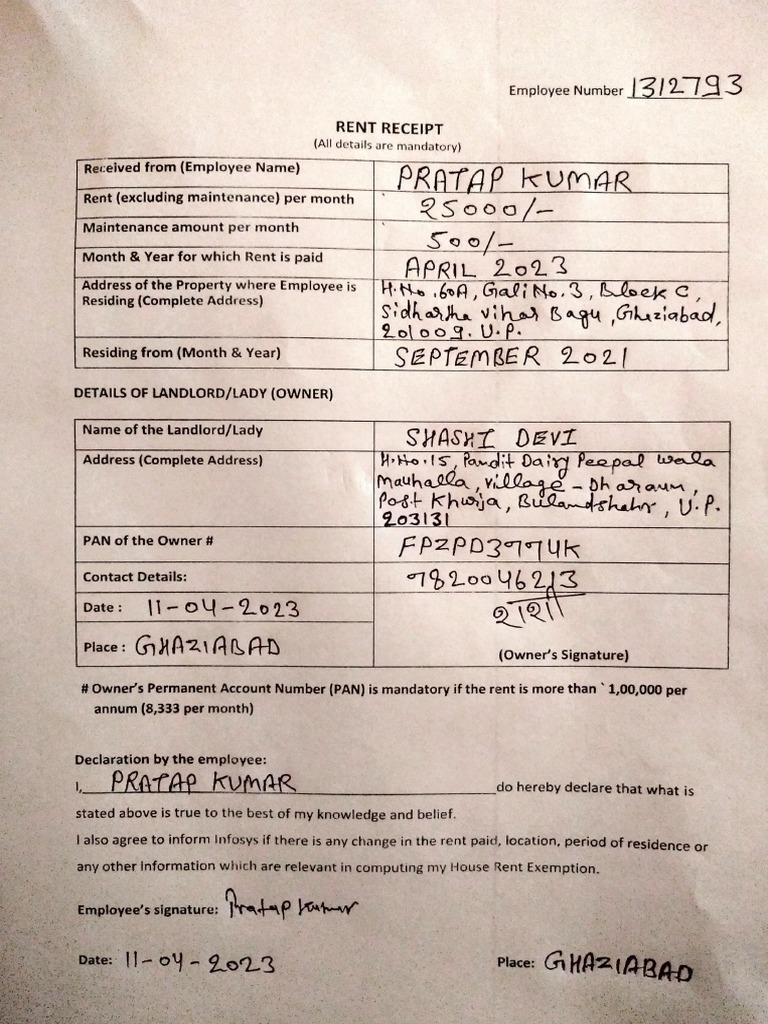 Employee Number 1312793
RENT RECEIPT
(All details are mandatory)
Received from (Employee Name) PRATAP KUMAR
Rent (excluding maintenance) per month ` 25000/-
Maintenance amount per month ` 500/-
Month & Year for which Rent is paid APRIL 2023
Address of the Property where Employee is Residing (Complete Address) H.No.60A, Gali No.3, Block C,
Sidhartha Vihar Bagu, Ghaziabad,
201009. U.P.
Residing from (Month & Year) SEPTEMBER 2021
DETAILS OF LANDLORD/LADY (OWNER)
Name of the Landlord/Lady SHASHI DEVI
Address (Complete Address) H.No.15, Pandit Dairy Peepal Wala
Mauhalla, Village - Dharaun,
Post Khurja, Bulandshahr, U.P.
203131
PAN of the Owner # FPZPD3774K
Contact Details: 9820046213
Date : 11-04-2023 शशी
Place : GHAZIABAD (Owner's Signature)
# Owner's Permanent Account Number (PAN) is mandatory if the rent is more than ` 1,00,000 per
annum (8,333 per month)
Declaration by the employee:
I, PRATAP KUMAR do hereby declare that what is
stated above is true to the best of my knowledge and belief.
I also agree to inform Infosys if there is any change in the rent paid, location, period of residence or
any other Information which are relevant in computing my House Rent Exemption.
Employee's signature: Pratap Kumar
Date: 11-04-2023 Place: GHAZIABAD